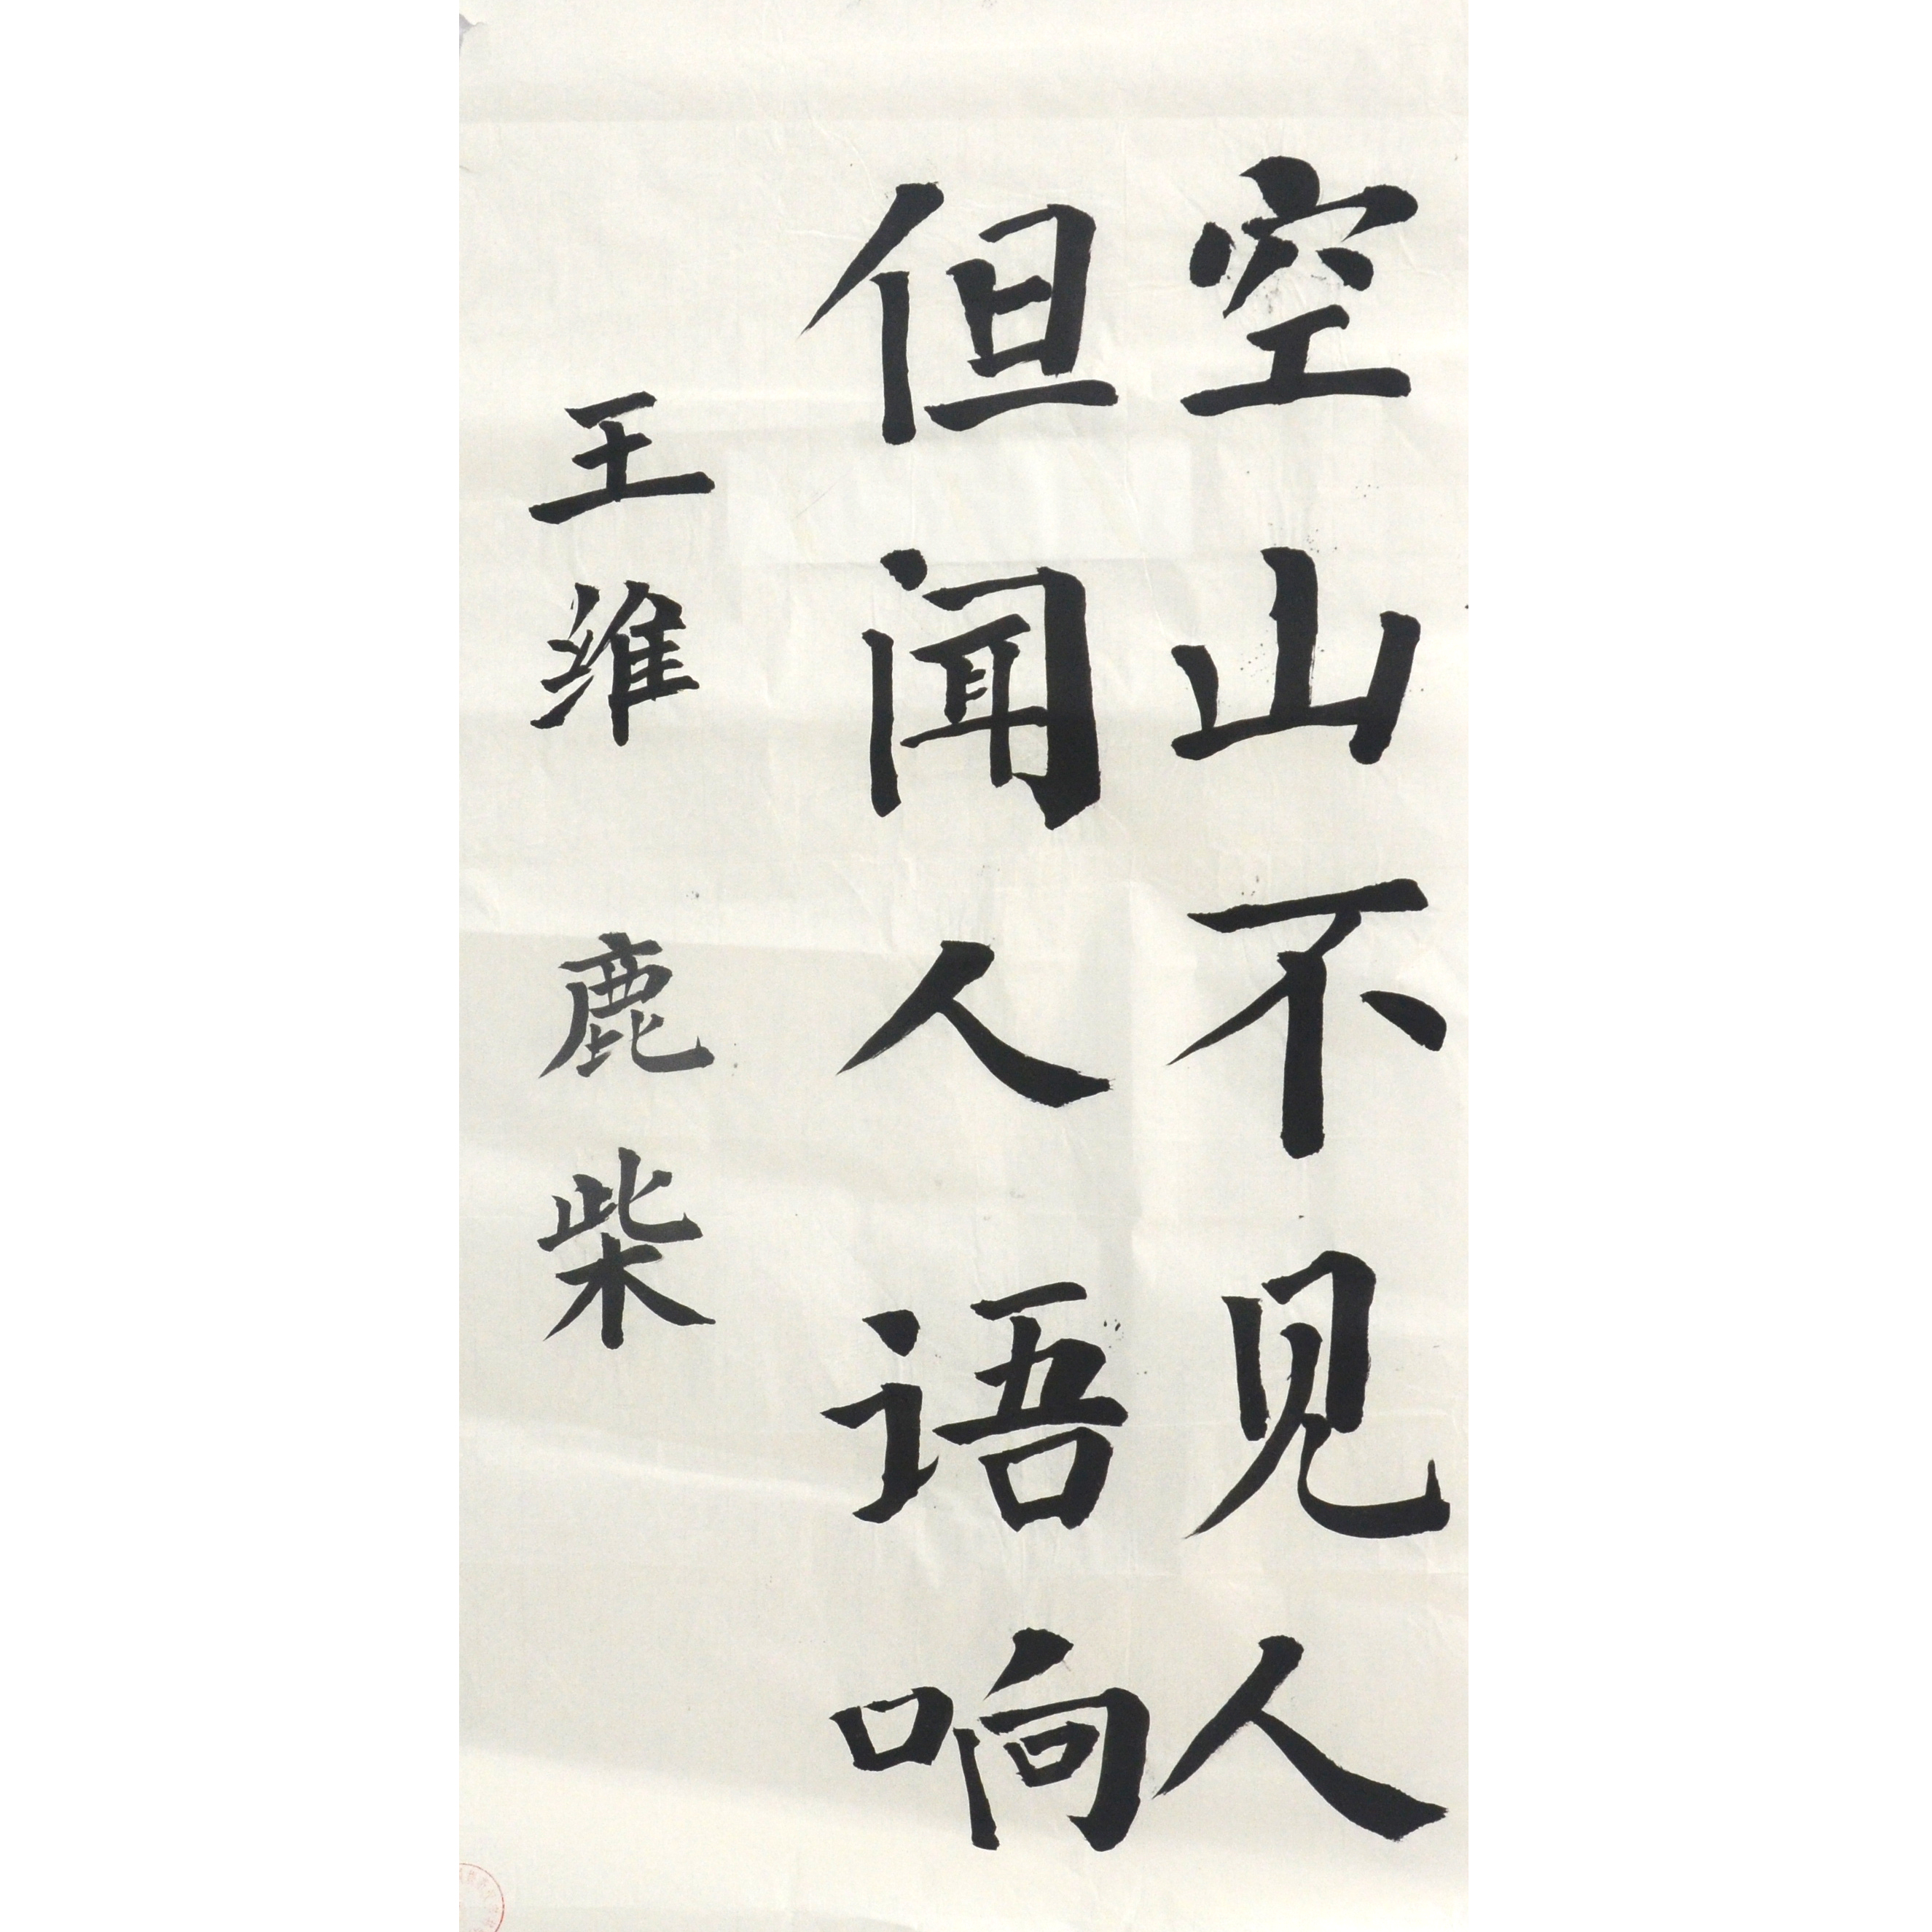 空山不见人
但闻人语响
王维 鹿柴